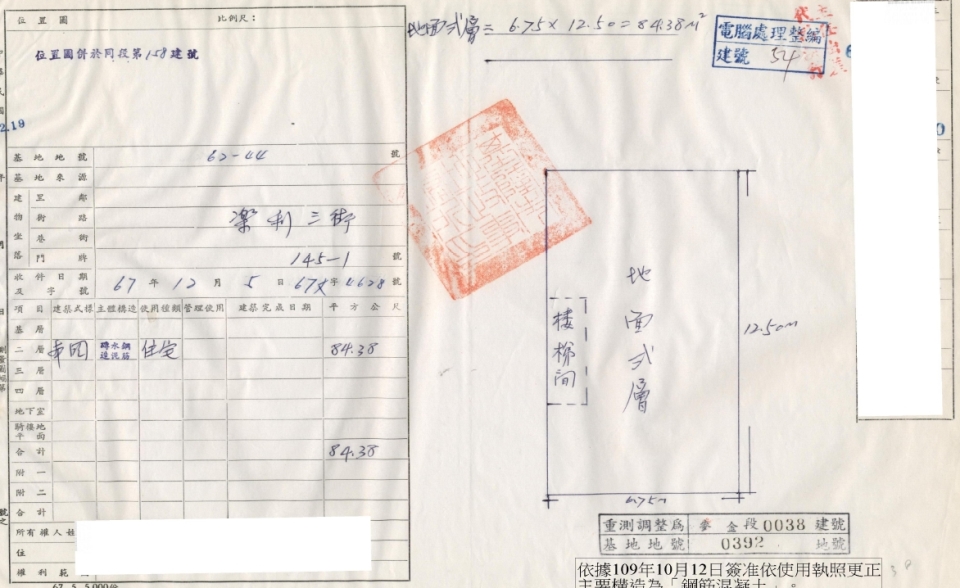 位置圖 比例尺：
位置圖併於同段第158建號
地面弍層＝6.75×12.50＝84.38M²
電腦處理整編
建號 54
2.19
基地地號 62-44 號
基地來源
建 里 鄰
物 街 路 樂利三街
坐 巷 街
落 門牌 145-1 號
收件日期 67年12月5日
及字號 67 字4628號
項目 建築式樣 主體構造 使用種類 管理使用 建築完成日期 平方公尺
基層
二層 本国 住宅 84.38
三層
四層
地下室
騎樓地
平面
合計 84.38
附一
附二
合計
所有權人姓
住
權利範
67. 5. 5,000份
地面弍層
樓梯间
12.50m
6.75m
重測調整為 金段0038建號
基地地號 0392 地號
依據109年10月12日簽准依使用執照更正
主要構造為「鋼筋混凝土」。